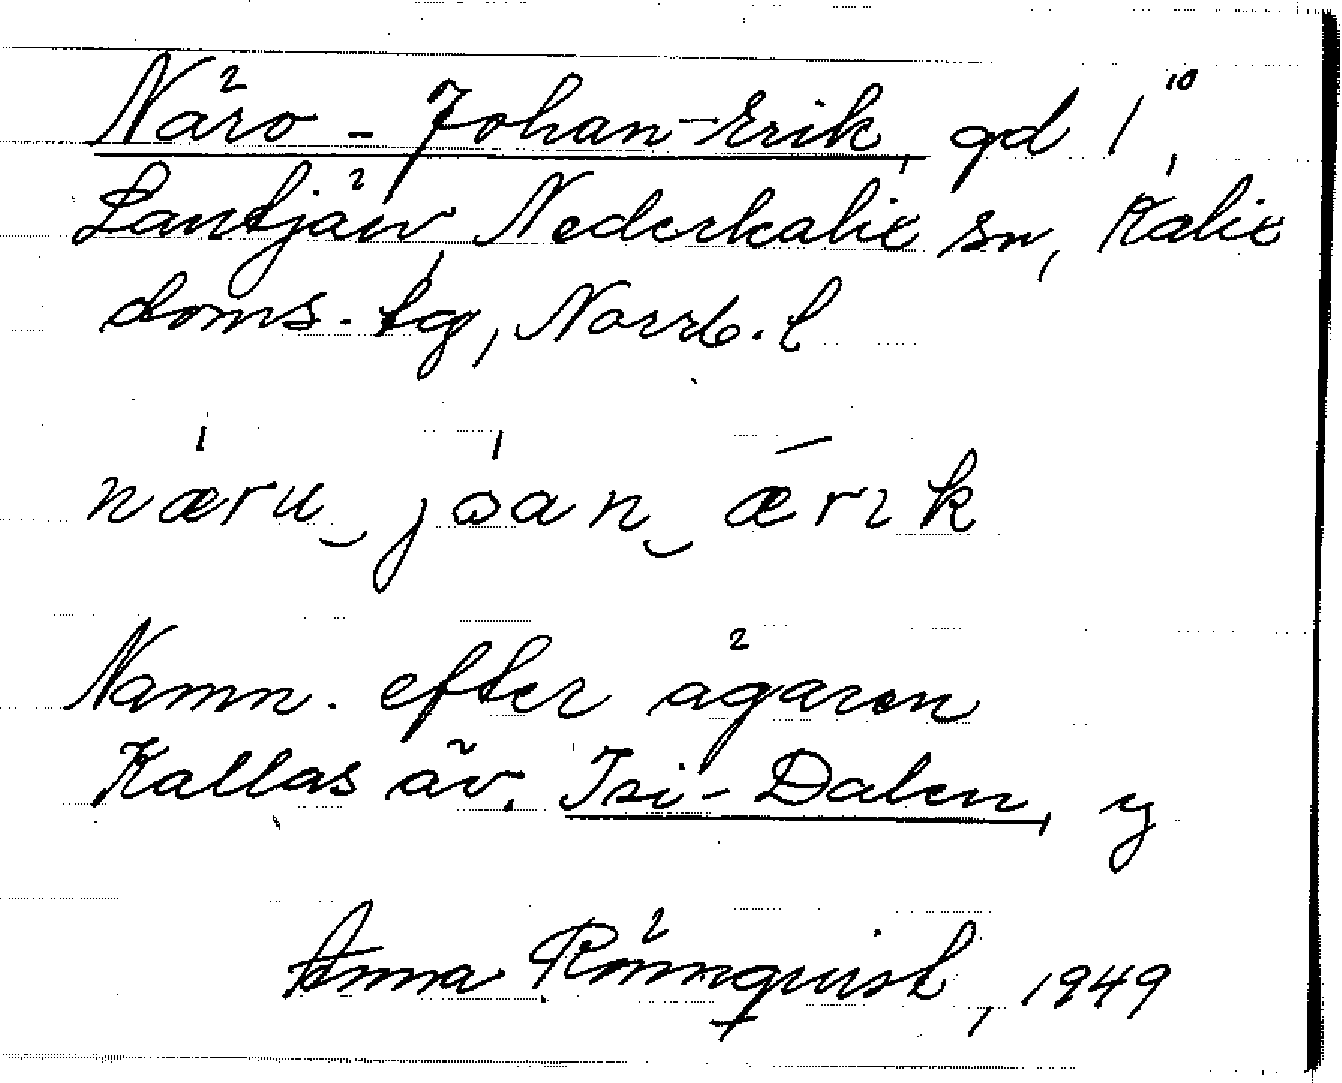 Näro - Johan-Erik, gd 1¹⁰,
Lantjärv, Nederkalix sn, Kalix
doms. tg, Norrb. l
næru‿jɷan‿ærık
Namn. efter ägaren
Kallas äv. Isi-Dalen,
Anna Rönnqvist, 1949